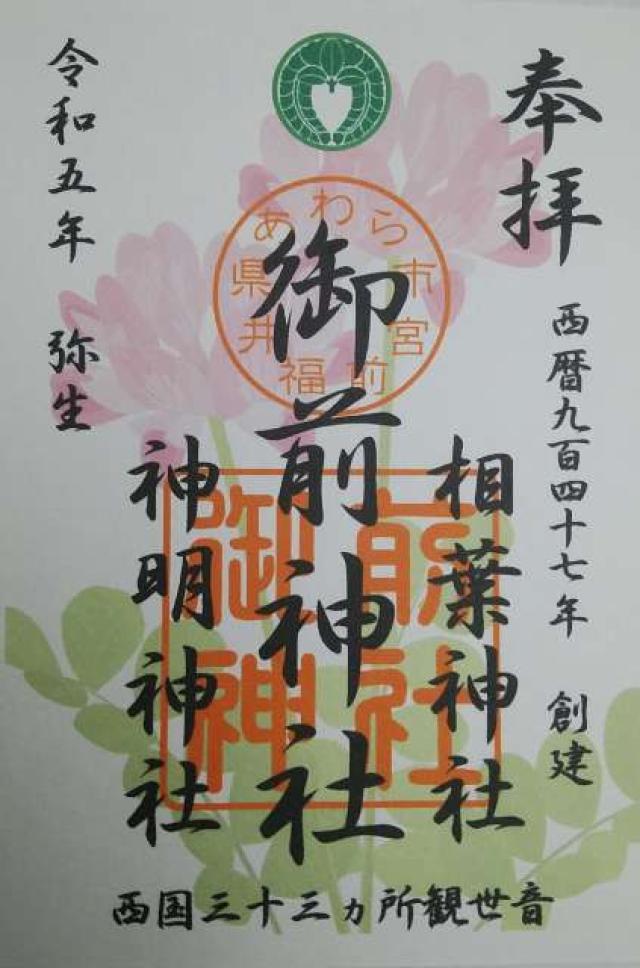 奉拝
西暦九百四十七年 創建
相葉神社
御前神社
神明神社
令和五年 弥生
西国三十三ヵ所観世音
福井県あわら市宮前
御前
神社